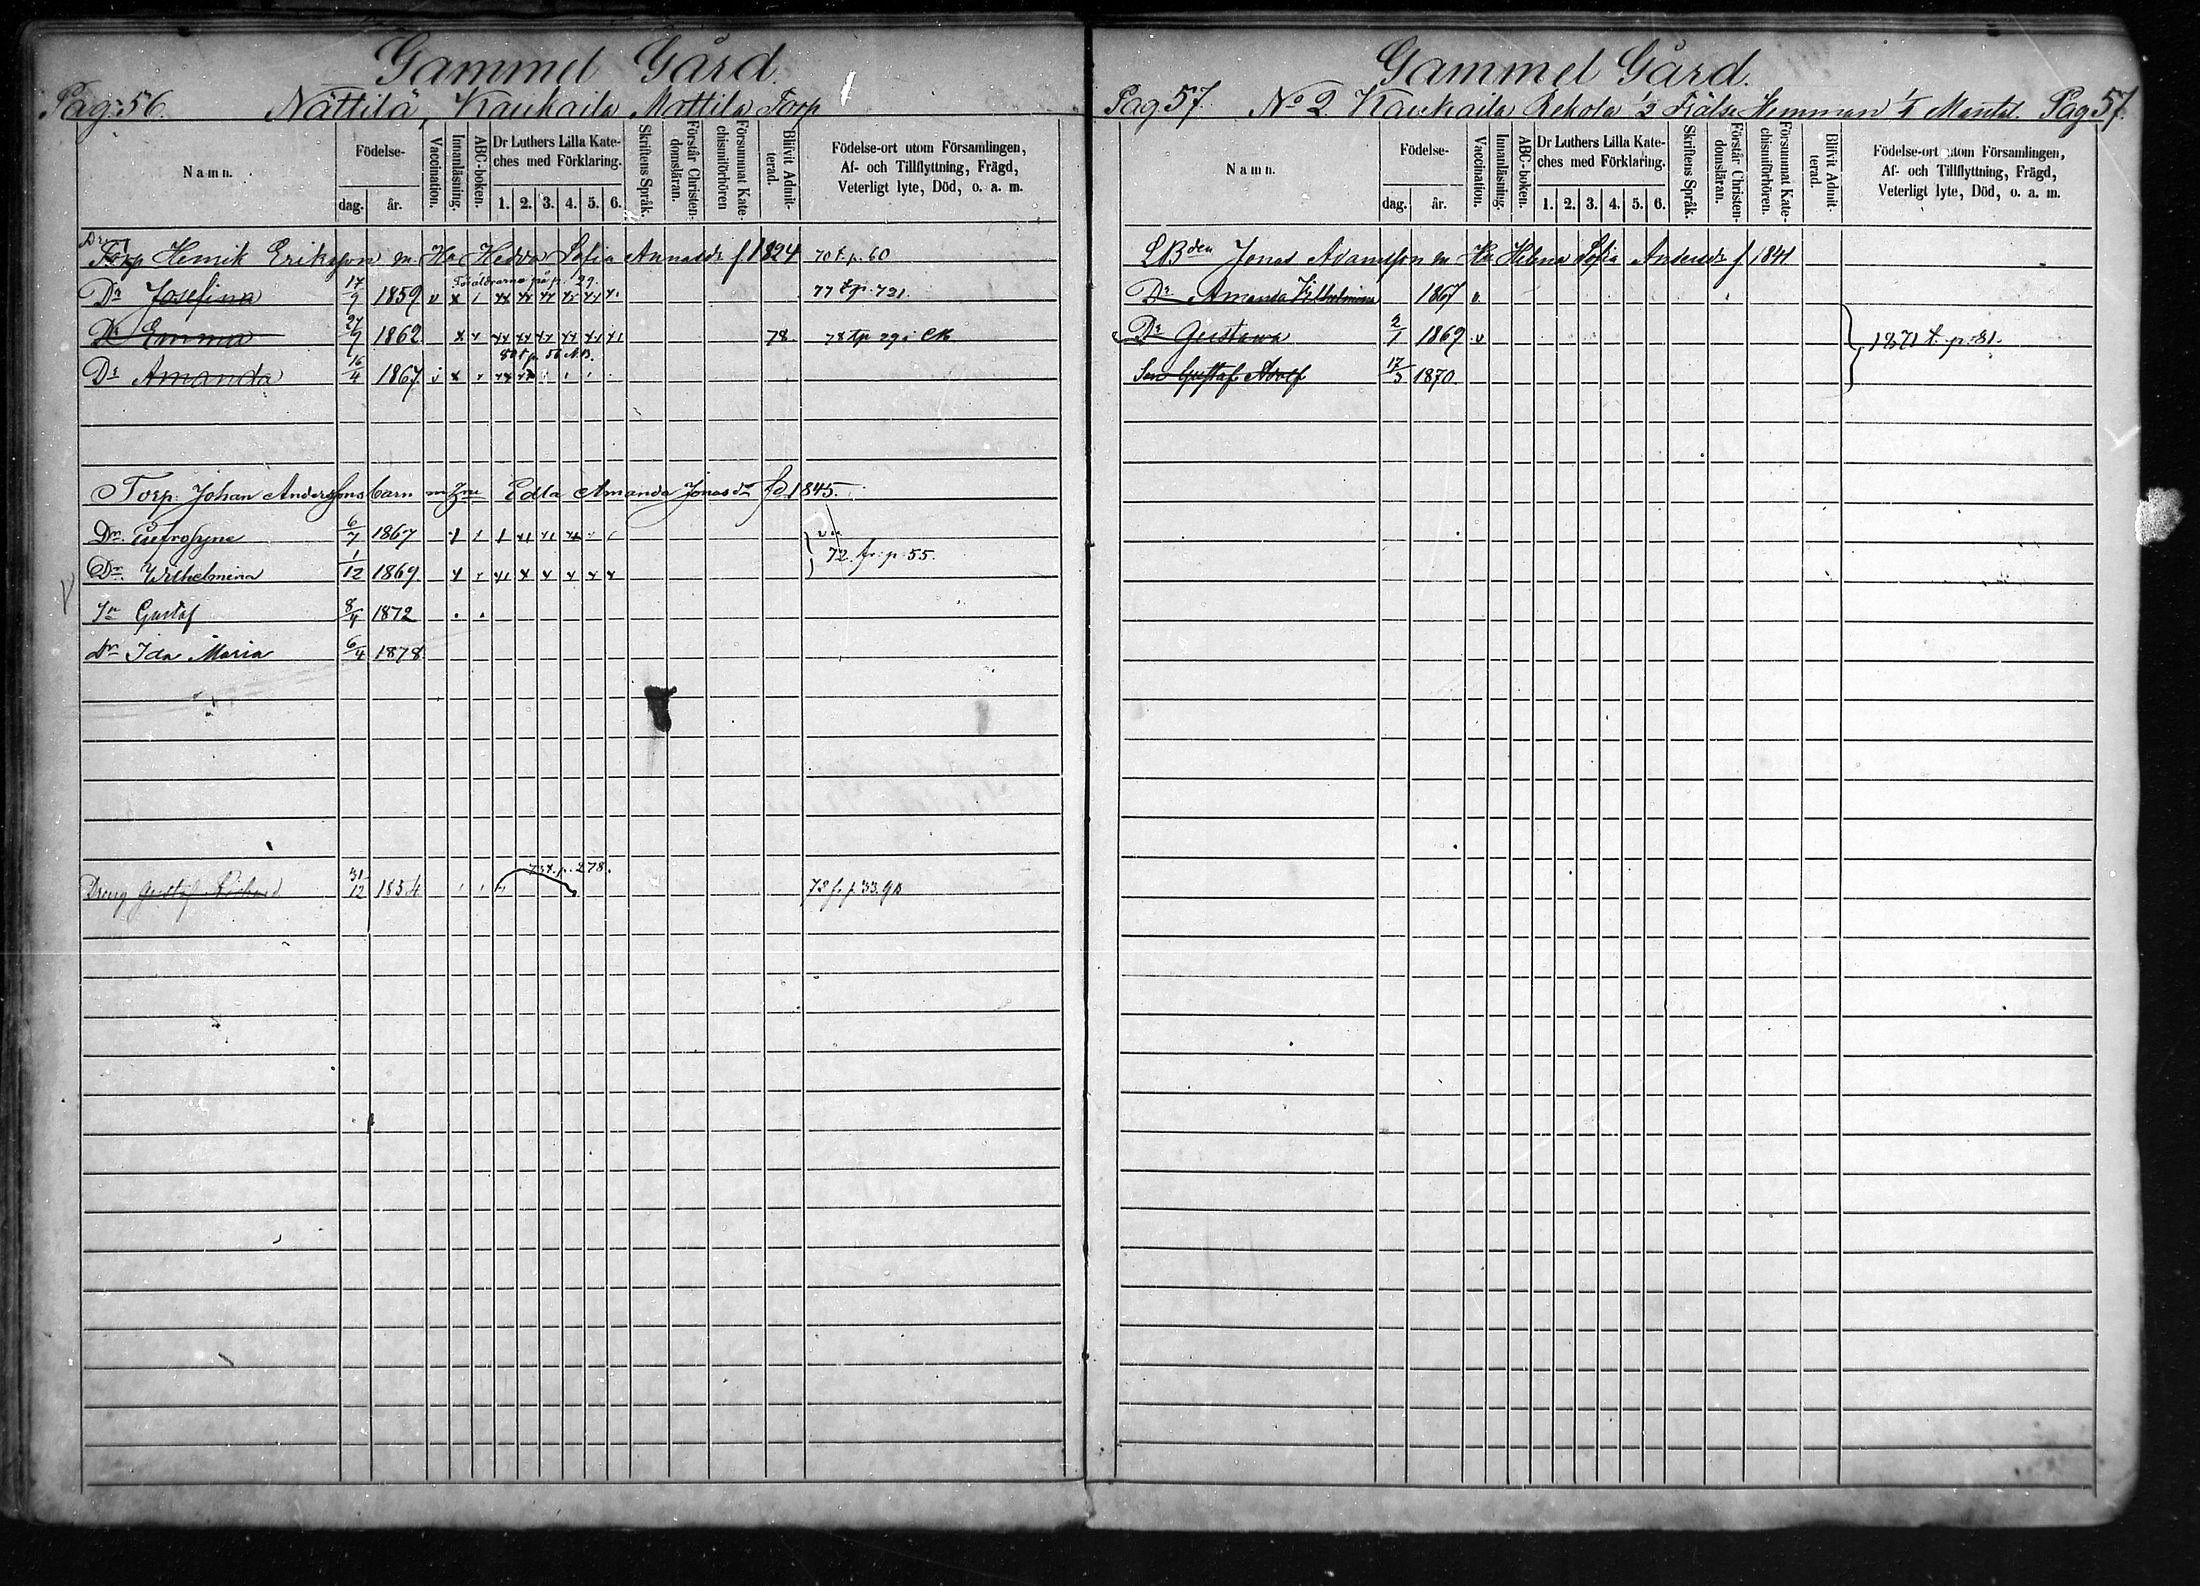 Gammel Gård.
Pag: 56. Nättilä, Kaukaila Mattila Torp
Namn.
Födelse-
dag. år.
Vaccination.
Innanläsning.
ABC-boken.
Dr Luthers Lilla Kate-
ches med Förklaring.
1. 2. 3. 4. 5. 6.
Skriftens Språk.
Förstår Christen-
domsläran.
Försummat Kate-
chismiförhören
Blifvit Admit-
terad.
Födelse-ort utom Församlingen,
Af- och Tillflyttning, Frägd,
Veterligt lyte, Död, o. a. m.
Torp Henrik Eriksson m. Hu Hedva Sofia Annasdr f 1824 70 t. p. 60
Föräldrarna på p. 29.
Dr Josefina 17/9 1859 v x 77 t p. 721.
Dr Emma 27/7 1862 x 78. 78 tp 29
80 t p. 56
Dr Amanda 16/4 1867. v x
Torp. Johan Anderssons barn m Edla Amanda Jonasdr fd. 1845.
Dr. 6/7 1867
72. fr. p. 55.
Dr. Wilhelmina 1/12 1869
Sn Gustaf 8/4 1872
Dr Ida Maria 6/4 1878
73 t. p. 278.
Dreng Gustaf Richard 31/12 1854 73 f. p. 33.
Gammel Gård.
Pag 57. No 2. Kaukaila Rekola 1/2 Frälse Hemman 1/4 Mantal. Pag 57.
Namn.
Födelse-
dag. år.
Vaccination.
Innanläsning.
ABC-boken.
Dr Luthers Lilla Kate-
ches med Förklaring.
1. 2. 3. 4. 5. 6.
Skriftens Språk.
Förstår Christen-
domsläran.
Försummat Kate-
chismiförhören.
Blifvit Admit-
terad.
Födelse-ort utom Församlingen,
Af- och Tillflyttning, Frägd,
Veterligt lyte, Död, o. a. m.
LBden Jonas Adamsson m Hu Helena Sofia Andersdr f 1841
Dr Amanda Wilhelmina 1867 v.
Dr Gustava 2/1 1869 v 1871 t. p. 81.
Son Gustaf Adolf 17/3 1870.